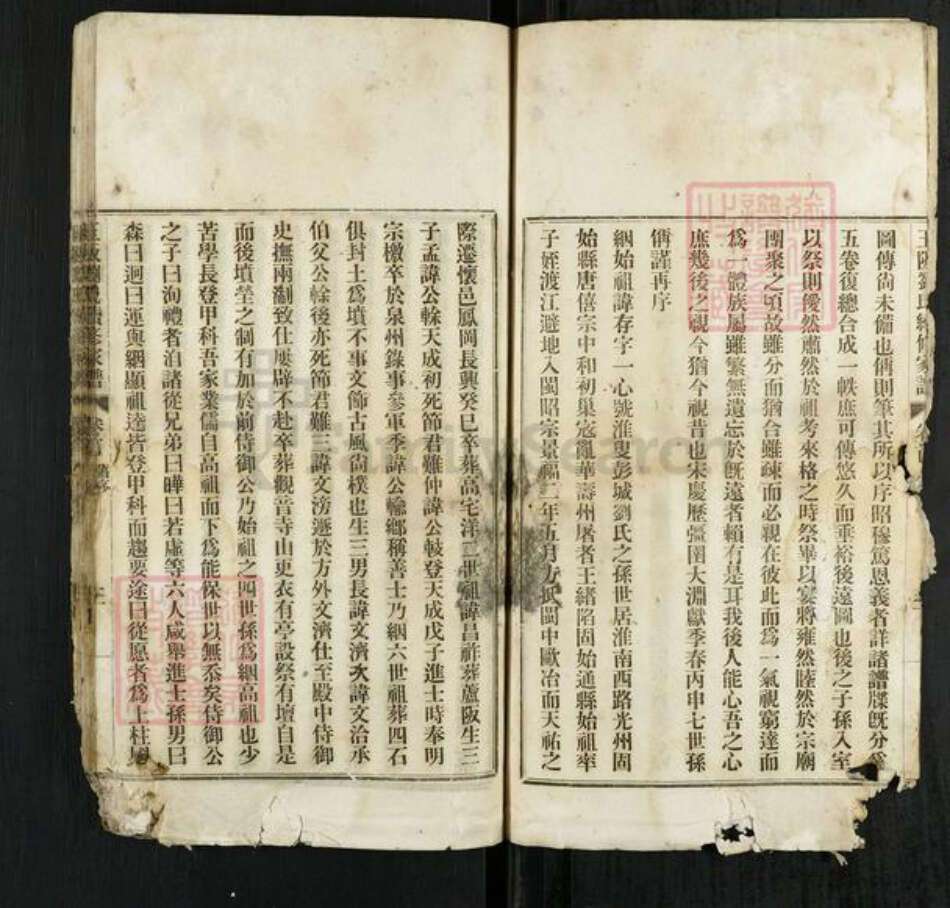 圖傳尙未備也偁則筆其所以序昭穆篤恩義者詳諸譜牒旣分爲
五卷復總合成一帙庶可傳悠久而垂裕後遠圖也後之子孫入室
以祭則僾然肅然於祖考來格之時祭畢以宴將雍然睦然於宗廟
團聚之頃故雖分而猶合雖疎而必親在彼此而爲一氣視窮達而
爲一體族屬雖繁無遺忘於旣遠者賴有是耳我後人能心吾之心
庶幾後之視今猶今視昔也宋慶歷彊圉大淵獻季春丙申七世孫
偁謹再序
絪始祖諱存字一心號淮叟彭城劉氏之孫世居淮南西路光州固
始縣唐僖宗中和初巢寇亂華壽州屠者王緒陷固始通縣始祖率
子姪渡江避地入閩昭宗景福二年五月方抵閩中歐冶而天祐之
際遷懷邑鳳岡長興癸巳卒葬高宅洋二世祖諱昌祚葬蘆阪生三
子孟諱公餗天成初死節君難仲諱公轂登天成戊子進士時奉明
宗檄卒於泉州錄事參軍季諱公轍鄉稱善士乃絪六世祖葬四石
俱封土爲墳不事文飾古風尙樸也生三男長諱文濟次諱文洽承
伯父公餗後亦死節君難三諱文滂遯於方外文濟仕至殿中侍御
史撫兩劊致仕屢辟不赴卒葬觀音寺山更衣有亭設祭有壇自是
而後墳塋之制有加於前侍御公乃始祖之四世孫爲絪高祖也少
苦學長登甲科吾家業儒自高祖而下爲能保世以無忝矣侍御公
之子曰洵禮者洎諸從兄弟曰曄曰若虛等六人咸舉進士孫男曰
森曰迥曰運與絪顯祖逵皆登甲科而趨要途曰從愿者爲上柱